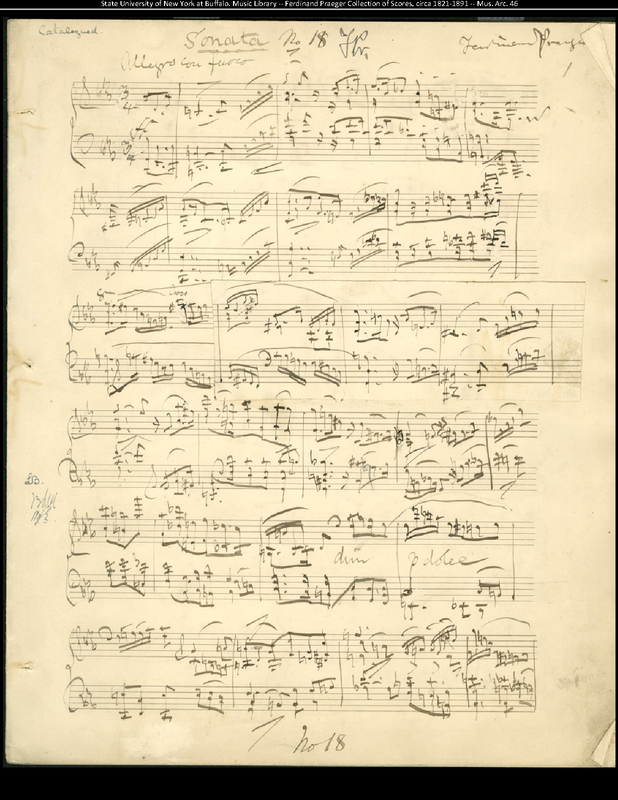 State University of New York at Buffalo. Music Library -- Ferdinand Praeger Collection of Scores, circa 1821-1891 -- Mus. Arc. 46
Catalogued.
Sonata No 18
Ferdinand Praeger
Allegro con fuoco
1
3
4
3
4
8
dim p dolce
1
No 18